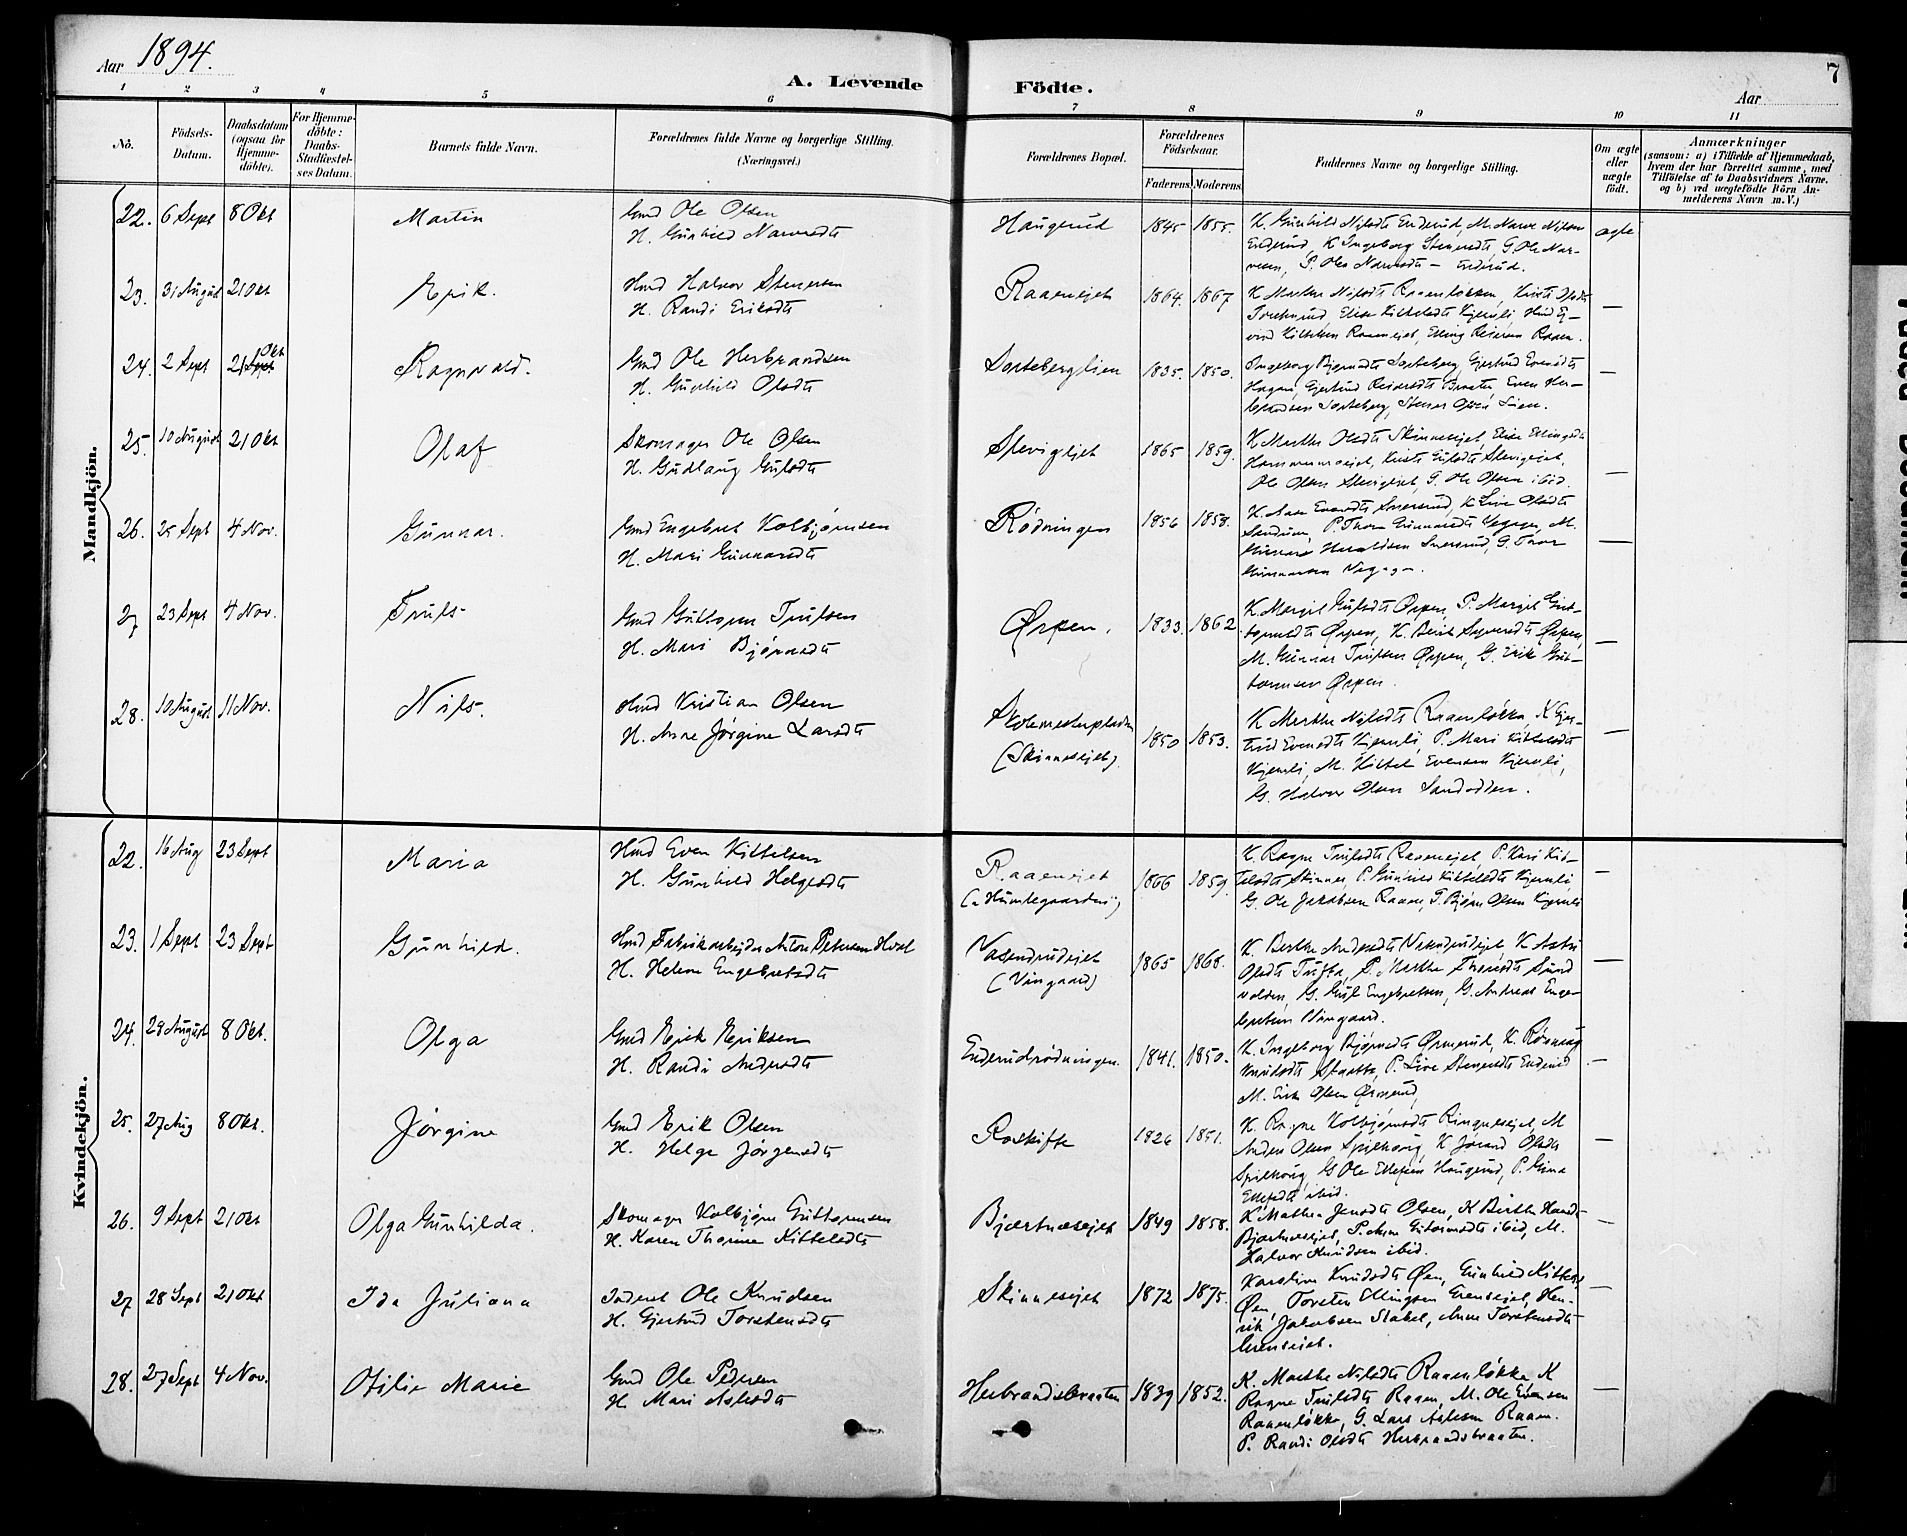 Aar 1894.
A. Levende Födte.
7
Aar
1 2 3 4 5 6 7 8 9 10 11
No.
Födsels-Datum.
Daabsdatum (ogsaa för Hjemme-döbte).
For Hjemme-döbte: Daabs-Stadfæstelses Datum.
Barnets fulde Navn.
Forældrenes fulde Navne og borgerlige Stilling.
(Næringsvei.)
Forældrenes Bopæl.
Forældrenes Födselsaar.
Faderens. Moderens.
Faddernes Navne og borgerlige Stilling.
Om ægte eller uægte födt.
Anmærkninger
(saasom: a) i Tilfælde af Hjemmedaab, hvem der har forrettet samme, med Tilföielse af to Daabsvidners Navne. og b) ved uægtefödte Börn Anmelderens Navn m.V.)
Mandkjön.
22. 6 Sept 8 Okt Martin
Gmd Ole Olsen
H. Gunhild Narvesdt
Haugerud 1845 1855.
K. Gunhild Nilsdt Enderud, M. Narve Nilsen
Enderud, K Ingeborg Stenersdt, G. Ole Nar-
vesen, P. Olea Narvesdt – Enderud.
ægte
23. 31 August 21 Okt Erik.
Hmd Halvor Stenersen
H. Randi Eriksdt
Raaeneiet 1864. 1867
K Marthe Nilsdt Raaenløkken, Kristi Olsdt
—
24. 2 Sept 21 Sept Okt Ragnvald.
Gmd Ole Herbrandsen
H. Gunhild Olsdt
Sorteberglien 1835. 1850.
Ingeborg Bjørnsdt Sorteberg, Gjertrud Evensdt
Hagen, Gjertrud Reiersdt Braaten Even Her-
brandsen Sorteberg, Stener Olsen Lien.
—
25. 10 August 21 Okt Olaf
Skomager Ole Olsen
H. Gudlaug Gulsdt
Slevigeiet 1865 1859.
K Marthe Olsdt Skinneseiet, Elise Ellingsdt
Ole Olsen Slevigeiet, G. Ole Olsen ibid.
—
26. 25 Sept 4 Nov. Gunnar.
Gmd Engebret Kolbjørnsen
H. Mari Gunnarsdt
Rødningen 1856 1858.
—
27 23 Sept 4 Nov. Truls
Gmd Guttorm Trulsen
H. Mari Bjørnsdt
Ørpen. 1833. 1862.
K. Margit Gulsdt Ørpen, P. Margit Gut-
tormsdt Ørpen, K. Berit Syversdt Ørpen,
M. Gunnar Trulsen Ørpen, G. Erik Gut-
tormsen Ørpen.
—
28. 10 August 11 Nov. Nils.
Hmd Kristian Olsen
H. Anne Jørgine Larsdt
Skolemesterpladsen
(Skinneseiet) 1850 1853.
K Marthe Nilsdt Raaenløkka, K Gjer-
trud Evensdt Kjemli, P. Mari Kittelsdt
Kjemli, M. Kittel Evensen Kjemli,
G. Halvor Olsen Sandodden.
—
Kvindekjön.
22. 16 Aug 23 Sept Maria
Hmd Even Kittelsen
H. Gunhild Helgesdt
Raaeneiet
(„Humlegaarden“) 1866 1859.
K. Ragne Trulsdt Raaeneiet, P. Kari Kit-
telsdt Skinnes, P. Gunhild Kittelsdt Kjemli,
G. Ole Jakobsen Raaen, G. Bjørn Olsen Kjemli
—
23. 1 Sept 23 Sept Gunhild.
Hmd Fabrikarbejder Anton Petersen Hval
H. Helene Engebretsdt
Vasendrudeiet
(Vingaard) 1865 1868.
—
24. 29 August 8 Okt. Olga
Gmd Erik Eriksen
H. Randi Andersdt
Enderudrødningen. 1841. 1850.
K. Ingeborg Bjørnsdt Ørmerud, K. Rønnaug
Knudsdt Støatta, P. Live Stenersdt Enderud
M. Erik Olsen Ørmerud,
—
25. 27 Aug 8 Okt. Jørgine
Gmd Erik Olsen
H. Helga Jørgensdt
Roskifte 1826 1851.
K. Ragne Kolbjørnsdt Ringneseiet, M
Anders Olsen Spilhaug, K Jørand Olsdt
Spilhaug, G Ole Ellefsen Haugerud, P. Gina
Ellefsdt ibid.
—
26. 9 Sept 21 Okt Olga Gunhilda.
Skomager Kolbjørn Guttormsen
H. Karen Thorine Kittelsdt
Bjertneseiet 1849 1858.
K Mathea Jensdt Olsen, K Birthe Hansdt
Bjertneseiet, P. Anne Gutormsdt ibid, M.
Halvor Knudsen ibid.
—
27 28 Sept 21 Okt Ida Juliana
Inderst Ole Knudsen
H. Gjertrud Torstensdt
Skinneseiet 1872 1875.
Karoline Knudsdt Øen, Gunhild Kittelsd
Øen, Torsten Ellingsen Grenseiet, Hen-
rik Jakobsen Stabel, Anne Torstensdt
Grenseiet.
—
28. 27 Sept 4 Nov. Otilie Marie
Gmd Ole Pedersen
H. Mari Aslesdt
Herbrandsbraaten 1839 1852.
K. Marthe Nilsdt Raaenløkka K
Ragne Trulsdt Raaen, M. Ole Evensen
Raaenløkka, G. Lars Aslesen Raaen.
P. Randi Olsdt Herbrandsbraaten.
—